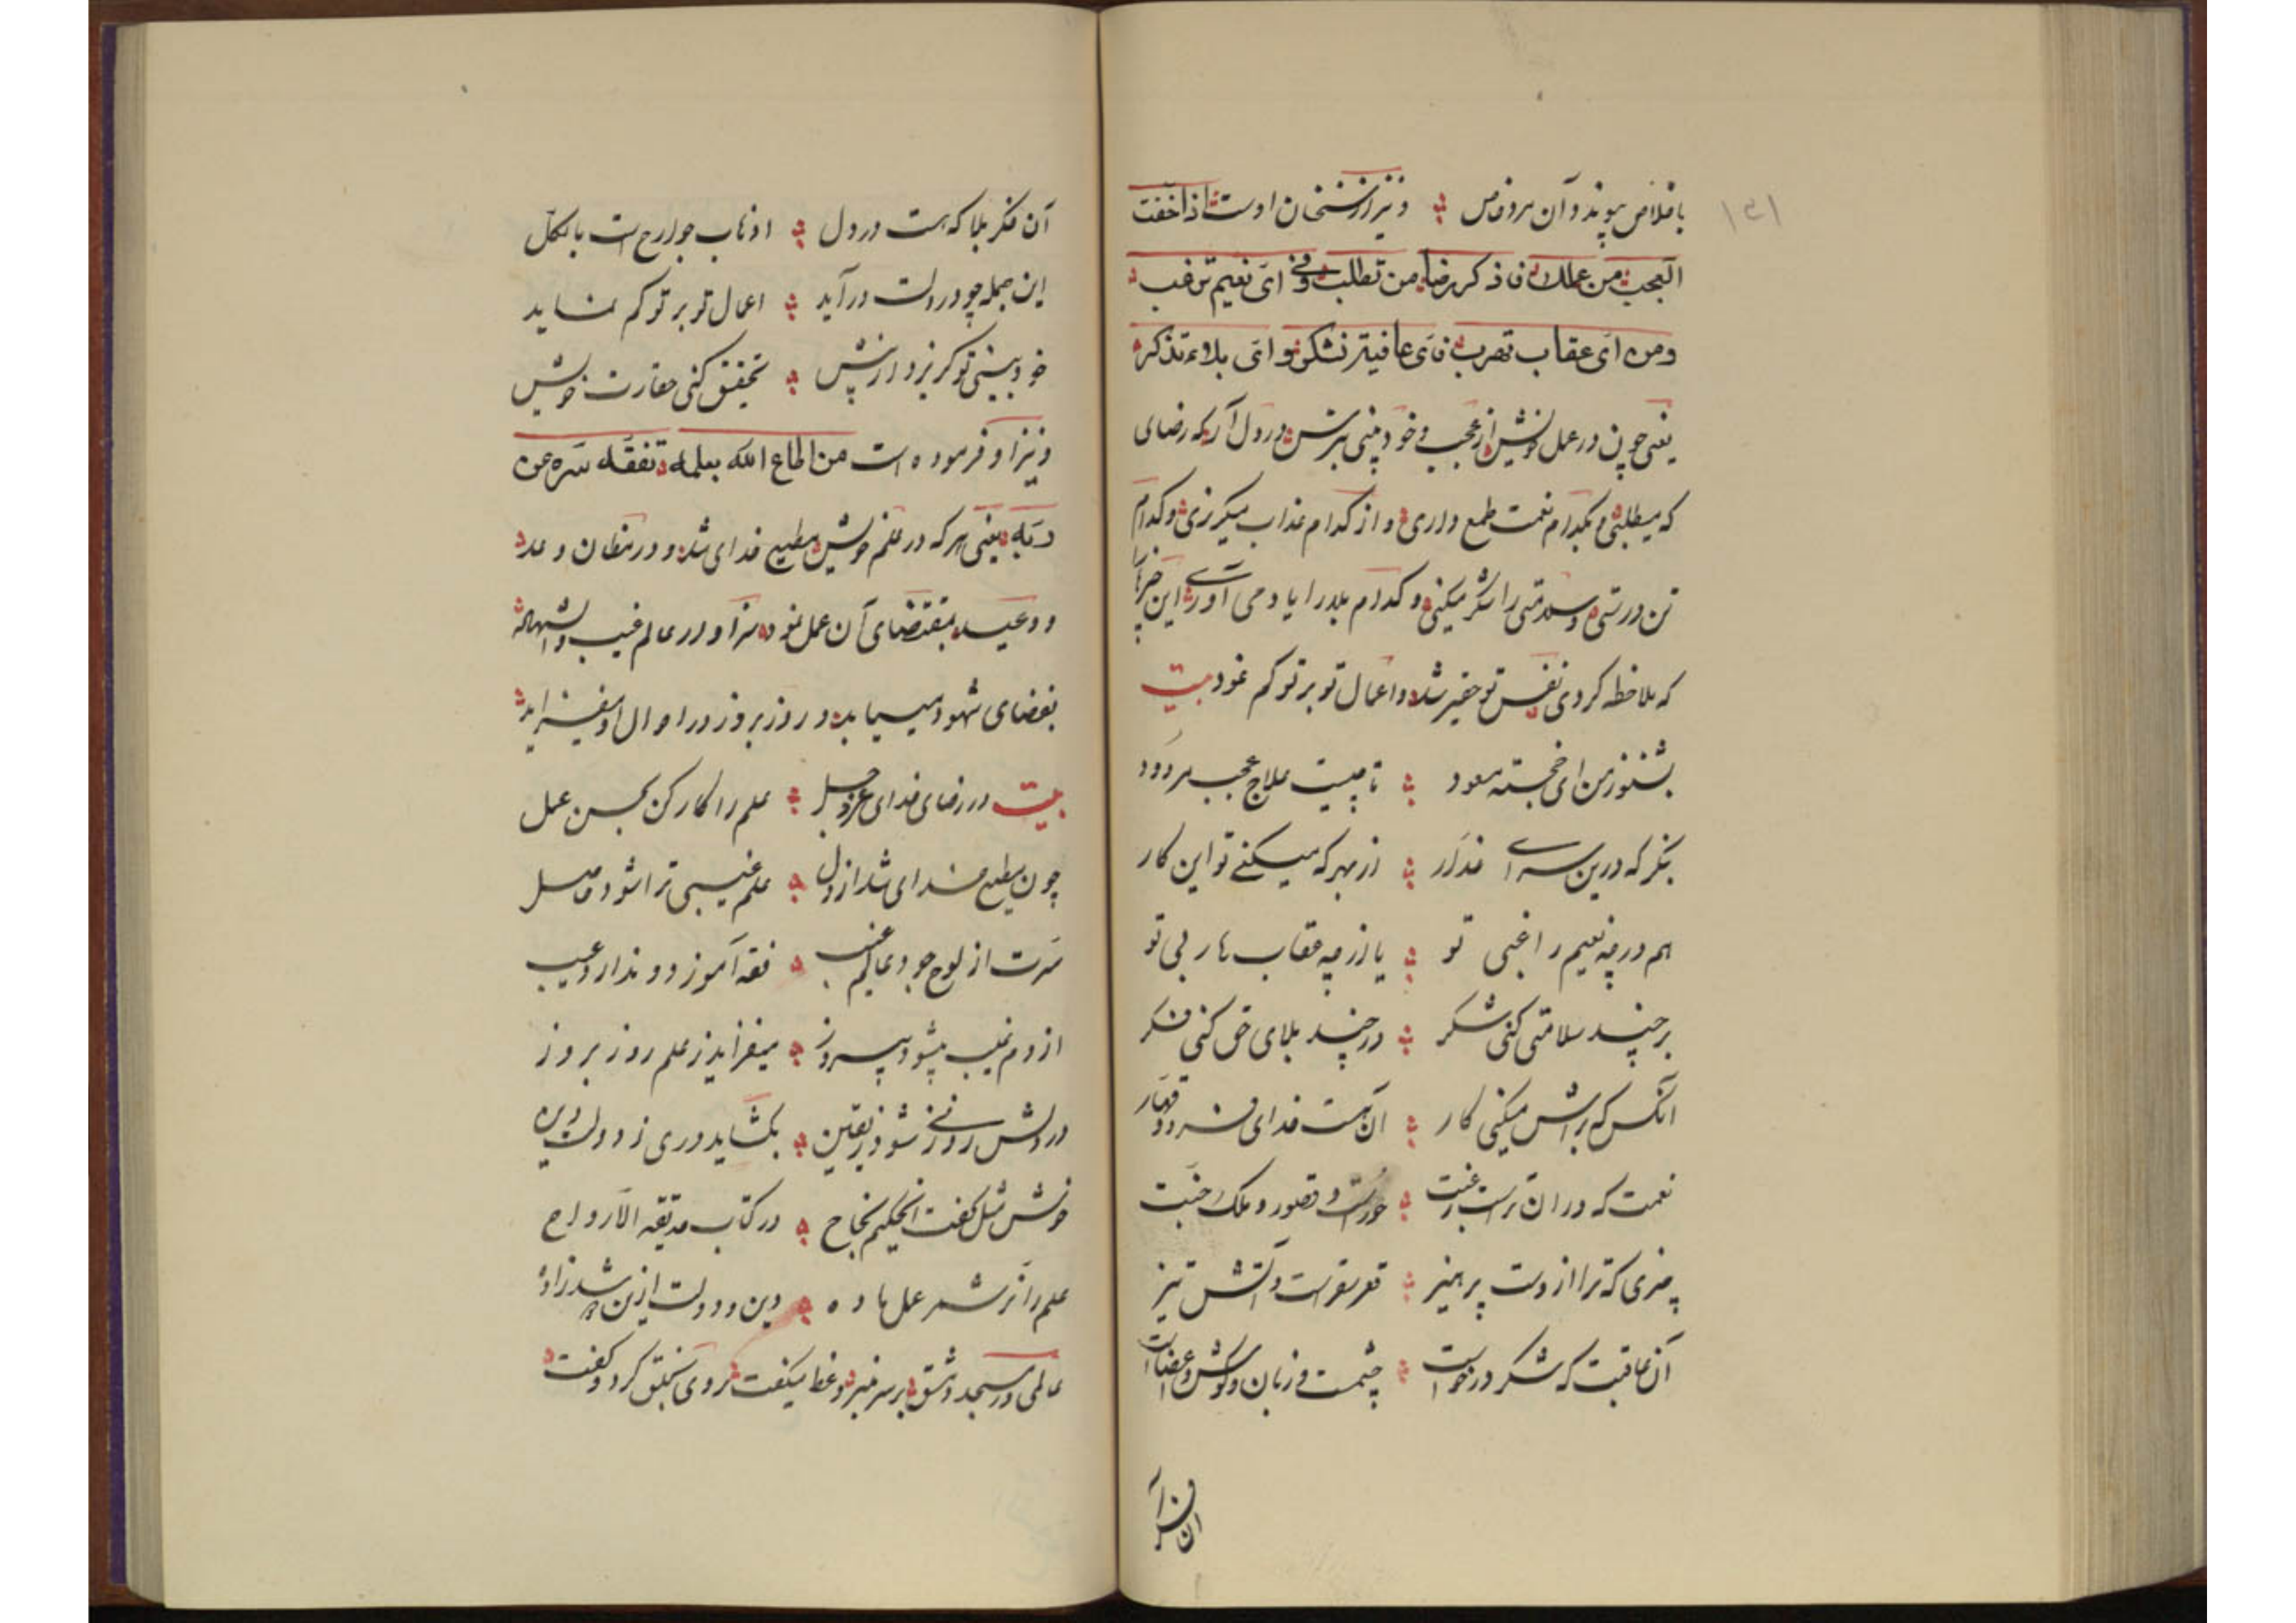 ۱۵۱
باخلاص پیوند و آن هر دو خاص ونیز از سخنان اوست اذا خفت
العجب من عملك فاذكر رضا من تطلب وفی ای نعیم ترغب
ومن ای عقاب تهرب فای عافیة تشکر و ای بلاء تذکر
یعنی چون در عمل خویش از عجب و خودبینی بترسی در دل آر که رضای
که میطلبی و بکدام نعمت طمع داری و از کدام عذاب میکریزی و کدام
تن درستی و سلامتی را شکر میکنی و کدام بلا را یاد می آوری این چیزها
که ملاحظه کردی نفس تو حقیر شد و اعمال تو بر تو کم نمود بیت
بشنو ز من ای خجسته مسعود تا چیست علاج عجب مردود
بنکر که درین سرای غدار از بهر که میکنے تو این کار
هم در چه نعیم راغبی تو یا از چه عقاب هاربی تو
بر چند سلامتی کنی شکر در چند بلای حق کنی فکر
آنکس که براش میکنی کار آن هست خدای فرد و قهار
نعمت که در ان تراست رغبت حورست و قصور و ملک جنت
چیزی که ترا از وست پرهیز قعر سقرست و آتش تیز
آن عاقبت که شکر درخواست چشمت و زبان و کوش و اعضاست
آن فکر بلا که هست در دل اذهاب جوارح است بالکل
این جمله چو در دلت در آید اعمال تو بر تو کم نماید
خودبینی تو کریزد از پیش تحقیق کنی حقارت خویش
ونیز او فرموده است من اطاع الله بعلمه تفقه سره عن
ربه یعنی هر که در علم خویش مطیع خدای شد و در مظان وعد
و وعید بمقتضای آن عمل نمود سر او در عالم غیب و الشهادة
بفضای شهود میسیابد و روز بروز در احوال او میفزاید
بیت در رضای خدای عز و جل علم را کار کن بحسن عمل
چون مطیع خدای شد از دل علم غیبی ترا شود حاصل
سرت از لوح جود عالم غیب فقه آموزد و ندارد عیب
از دم غیب میشود پیروز میفزاید ز علم روز بروز
در دلش روزنے شود ز یقین بکشاید دری ز دولت و دین
خوش مثل کفت آن حکیم نجاح در کتاب حدیقة الارواح
علم را نر شمر عمل ماده دین و دولت ازین شد زاده
عالمی در مسجد دمشق بر سر منبر وعظ میکفت روی بخلق کرد و کفت